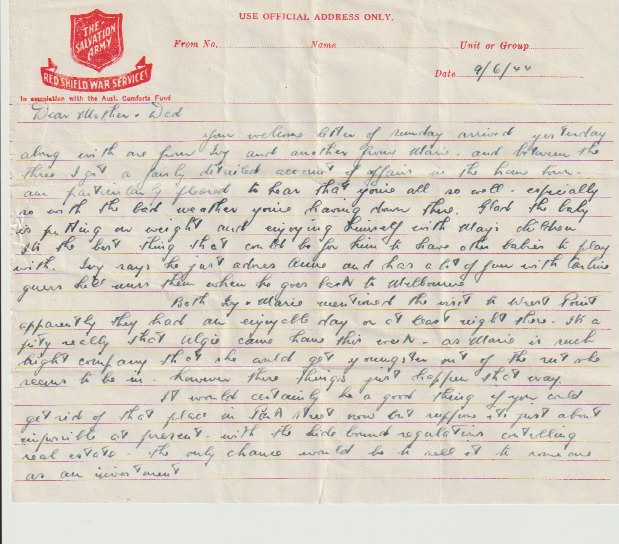 USE OFFICIAL ADDRESS ONLY.
THE
SALVATION
ARMY
RED SHIELD WAR SERVICES
In association with the Aust. Comforts Fund
From No. Name Unit or Group
Date 9/6/44
Dear Mother & Dad
your welcome letter of Sunday arrived yesterday
along with one from Ivy and another from Marie - and between the
three I got a fairly detailed account of affairs in the home town.
am particularly pleased to hear that you're all so well - especially
so with the bad weather you're having down there. Glad the baby
is putting on weight and enjoying himself with May's children
Its the best thing that could be for him to have other babies to play
with. Ivy says he just adores Anne and has a lot of fun with
guess he'll miss them when he goes back to Melbourne
Both Ivy & Marie mentioned the visit to West Point
apparently they had an enjoyable day or at least night there - Its a
pity really that Algie came home this week - as Marie is such
bright company that she would get youngster out of the rut who
seems to be in - however these things just happen that way.
It would certainly be a good thing if you could
get rid of that place in street now but suppose its just about
impossible at present - with the hide bound regulations controlling
real estate - the only chance would be to sell it to someone
as an investment